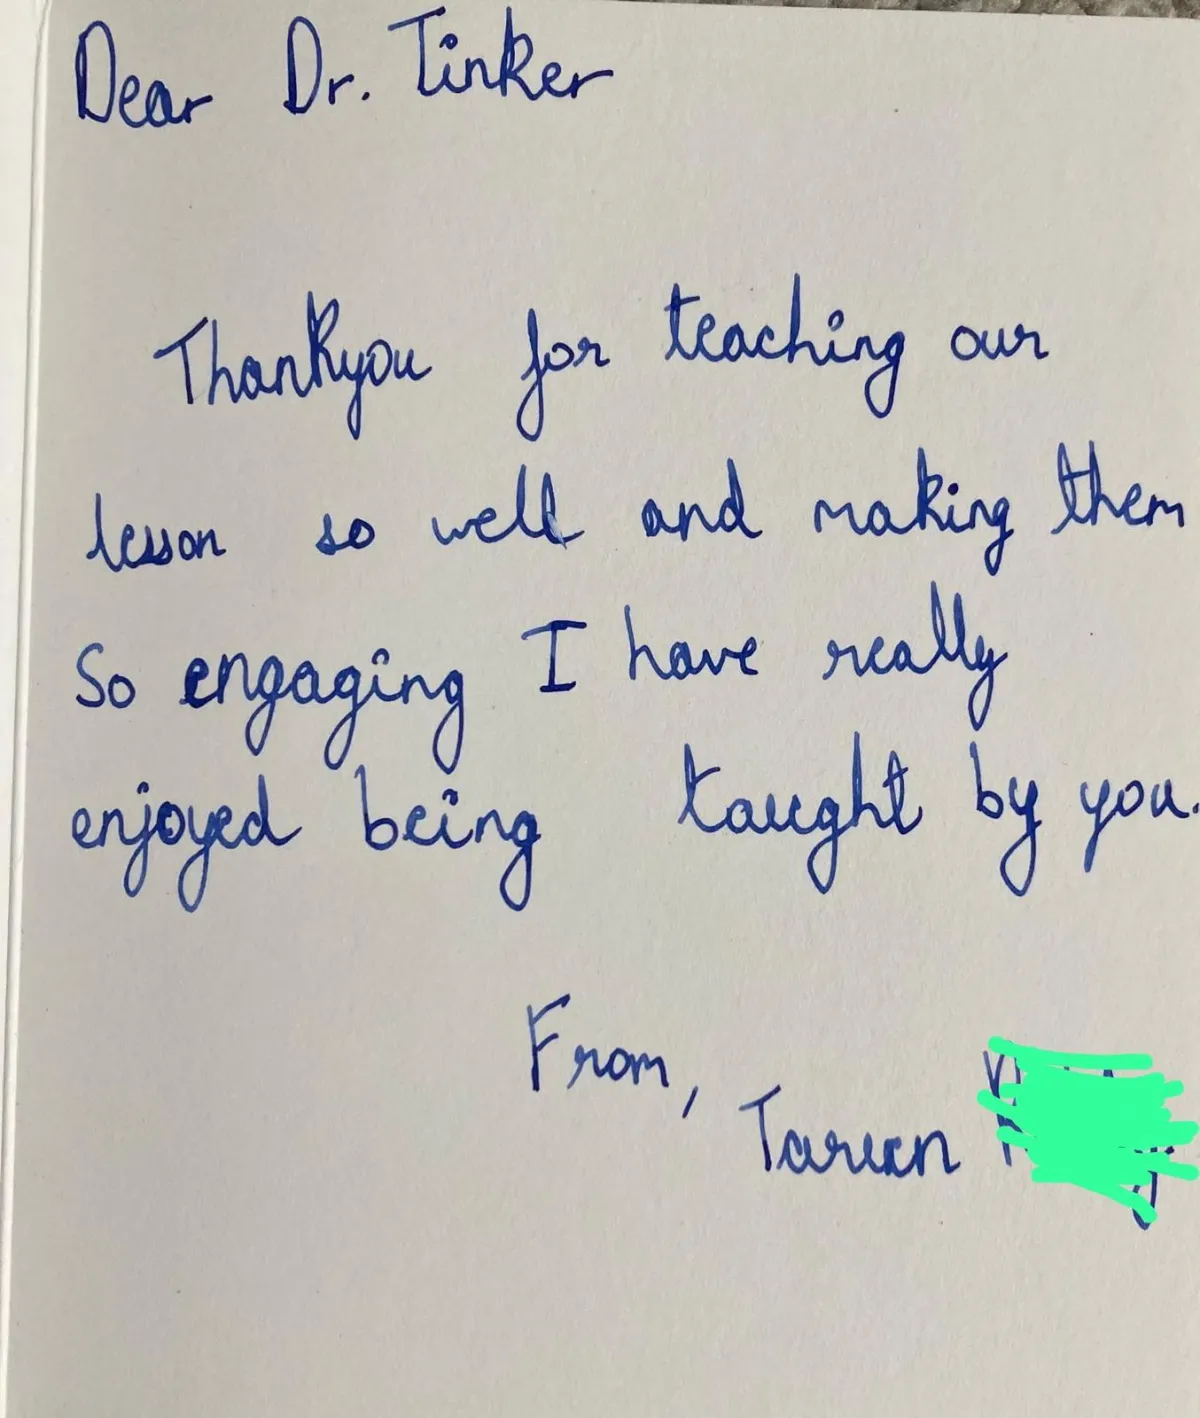 Dear Dr. Tinker
Thankyou for teaching our
lesson so well and making them
So engaging I have really
enjoyed being taught by you.
From,